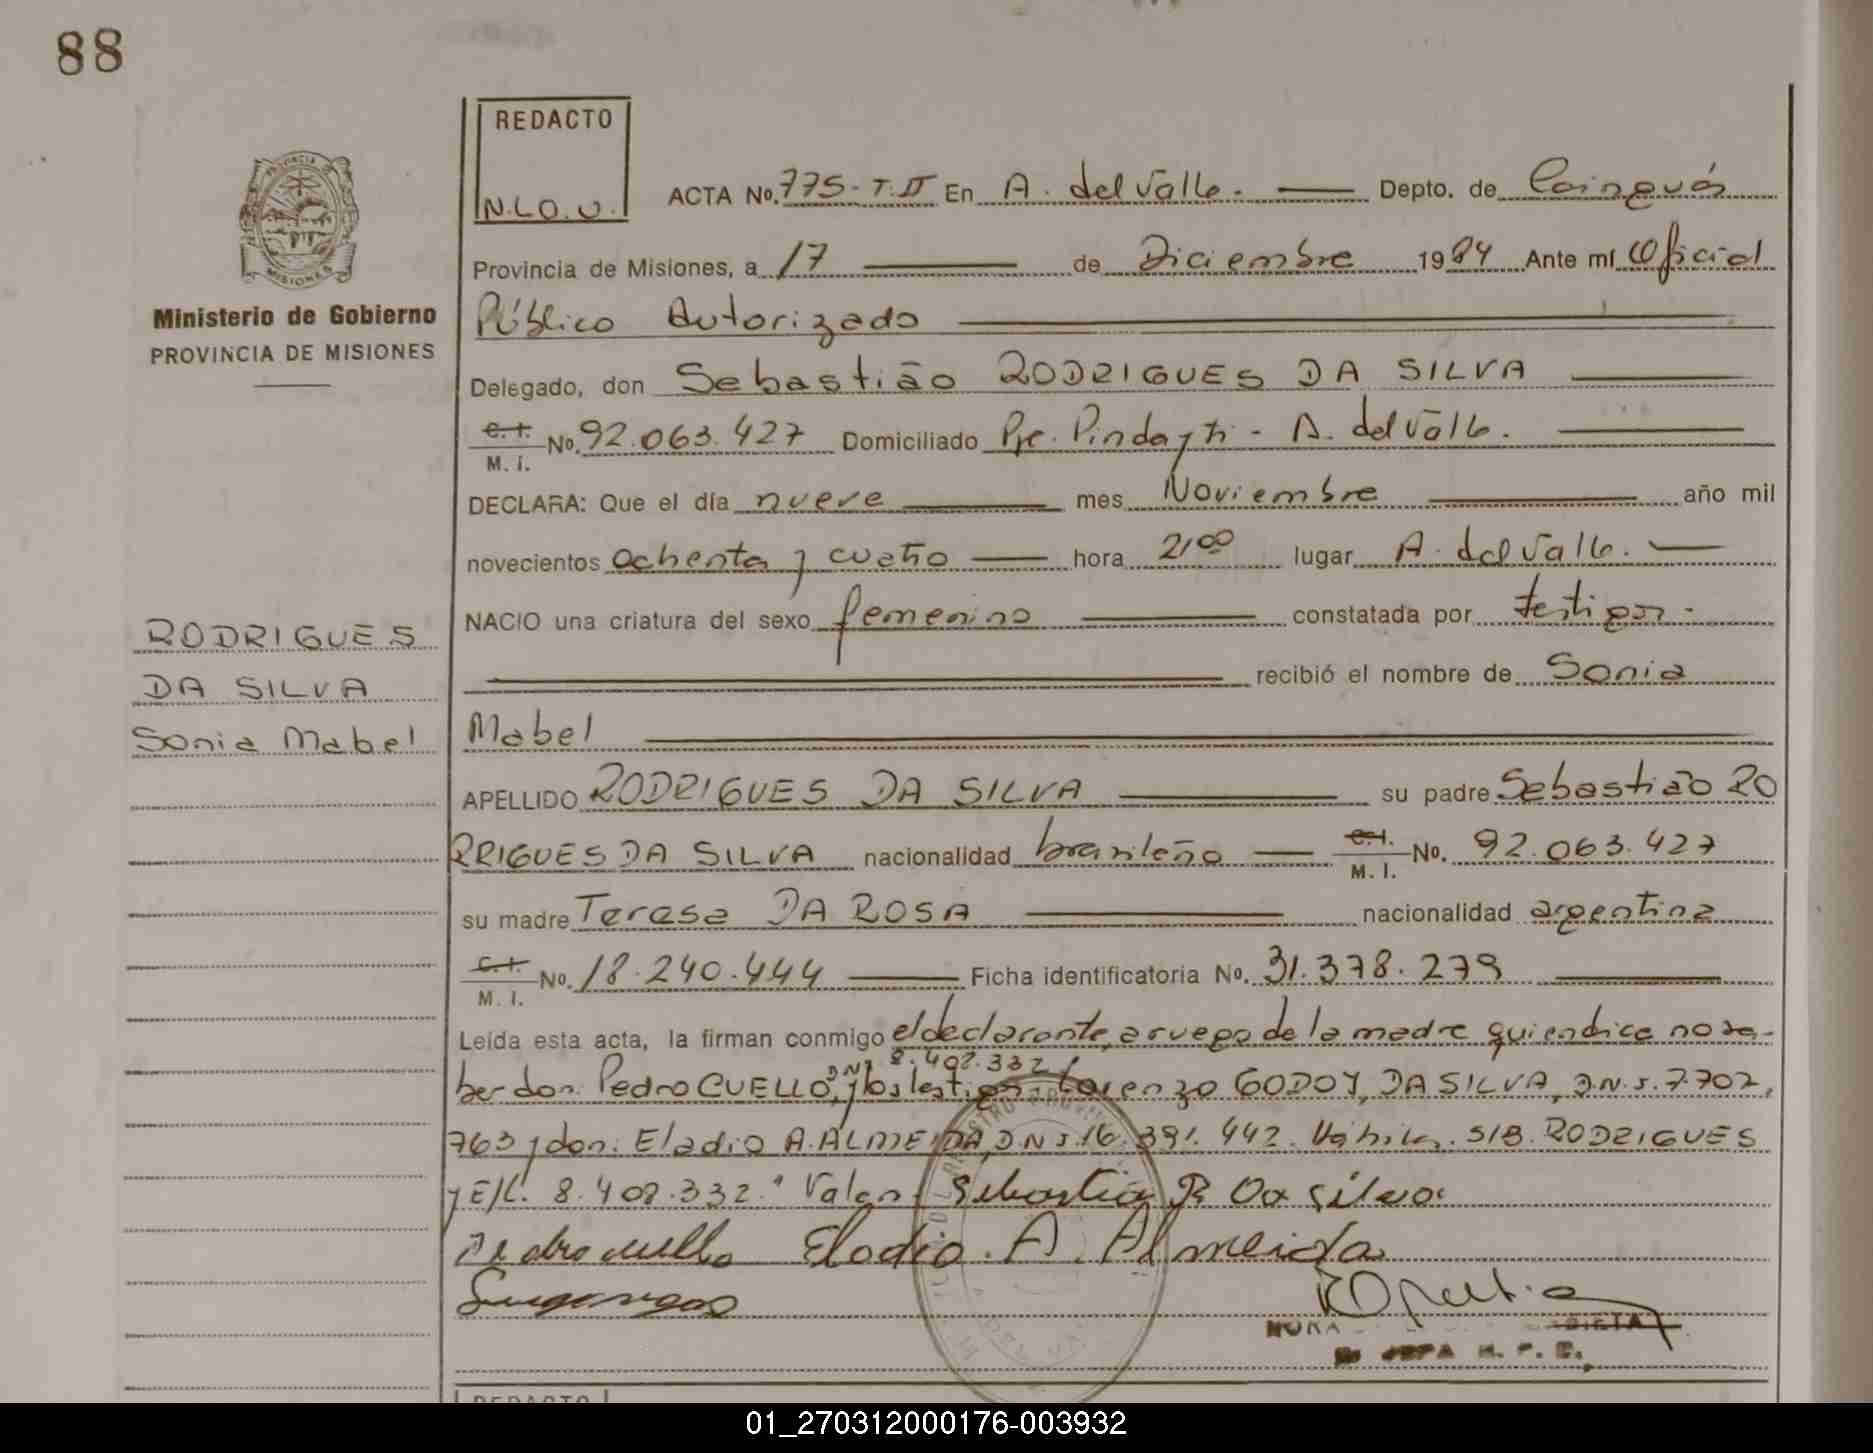 88
REDACTO
N.L.O.U.
PROVINCIA
MISIONES
Ministerio de Gobierno
PROVINCIA DE MISIONES
ACTA No. 775-T.II En A. del Valle. Depto. de Cainguás
Provincia de Misiones, a 17 de Diciembre 1984 Ante mí Oficial
Público Autorizado
Delegado, don Sebastião RODRIGUES DA SILVA
C.I. M.I. No. 92.063.427 Domiciliado Pje. Pindayti - A. del Valle.
DECLARA: Que el día nueve mes Noviembre año mil
novecientos ochenta y cuatro hora 2100 lugar A. del Valle.
NACIO una criatura del sexo femenino constatada por testigos.
recibió el nombre de Sonia
Mabel
RODRIGUES
DA SILVA
Sonia Mabel
APELLIDO RODRIGUES DA SILVA su padre Sebastião RO
RRIGUES DA SILVA nacionalidad brasileño C.I. M.I. No. 92.063.427
su madre Teresa DA ROSA nacionalidad argentina
C.I. M.I. No. 18.240.444 Ficha identificatoria No. 31.378.279
Leída esta acta, la firman conmigo el declarante, a ruego de la madre quien dice no sa-
8.408.332
ber don. Pedro CUELLO, y los testigos Lorenzo GODOY, DA SILVA, D.N.I. 7.702.
763 y don. Eladio A. ALMEIDA, D.N.I. 16.391.442. S/B. RODRIGUES
y E/L. 8.408.332." Valen. Sebastião R Da Silva
Pedro Cuello Eladio. A. Almeida
NORA
JEFA
REDACTO
01_270312000176-003932